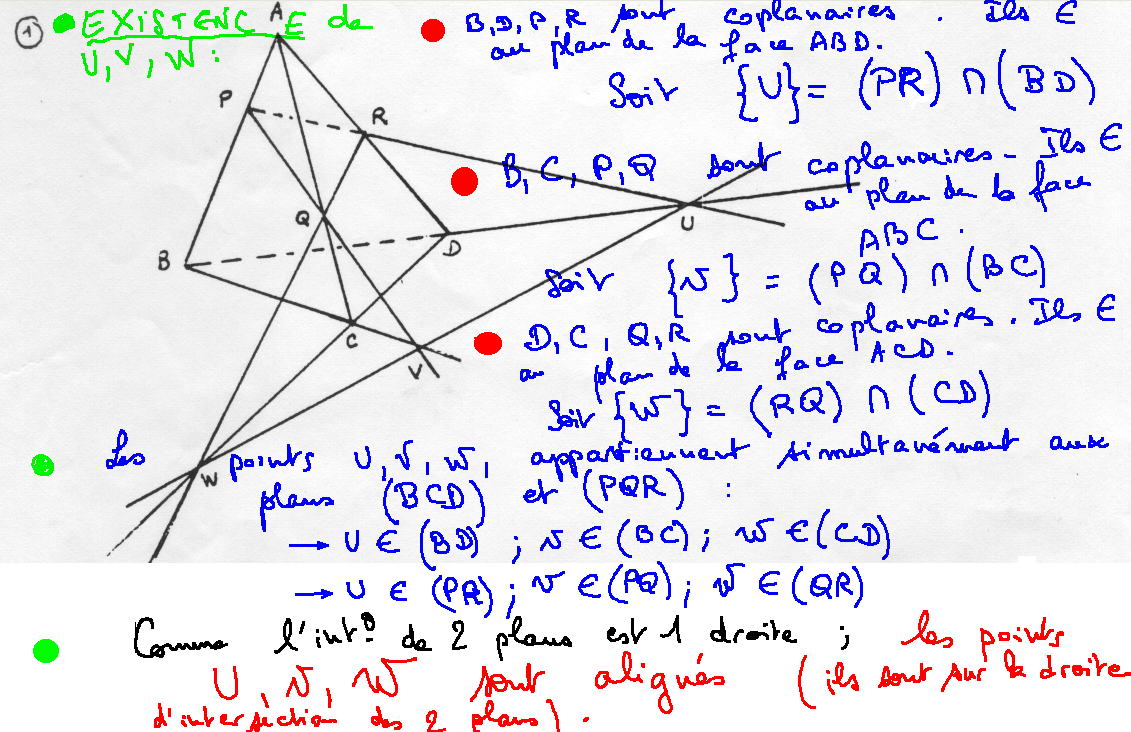 ① • EXISTENCE de
U, V, W :
B, D, P, R sont coplanaires. Ils ∈
au plan de la face ABD.
Soit {U} = (PR) ∩ (BD)
B, C, P, Q sont coplanaires - Ils ∈
au plan de la face
ABC.
Soit {V} = (PQ) ∩ (BC)
D, C, Q, R sont coplanaires. Ils ∈
au plan de la face ACD.
Soit {W} = (RQ) ∩ (CD)
A
P
R
Q
B
D
U
C
V
W
Les points U, V, W, appartiennent simultanément aux
plans (BCD) et (PQR) :
→ U ∈ (BD) ; V ∈ (BC) ; W ∈ (CD)
→ U ∈ (PR) ; V ∈ (PQ) ; W ∈ (QR)
Comme l'int° de 2 plans est 1 droite ; les points
U, V, W sont alignés (ils sont sur la droite
d'intersection des 2 plans).